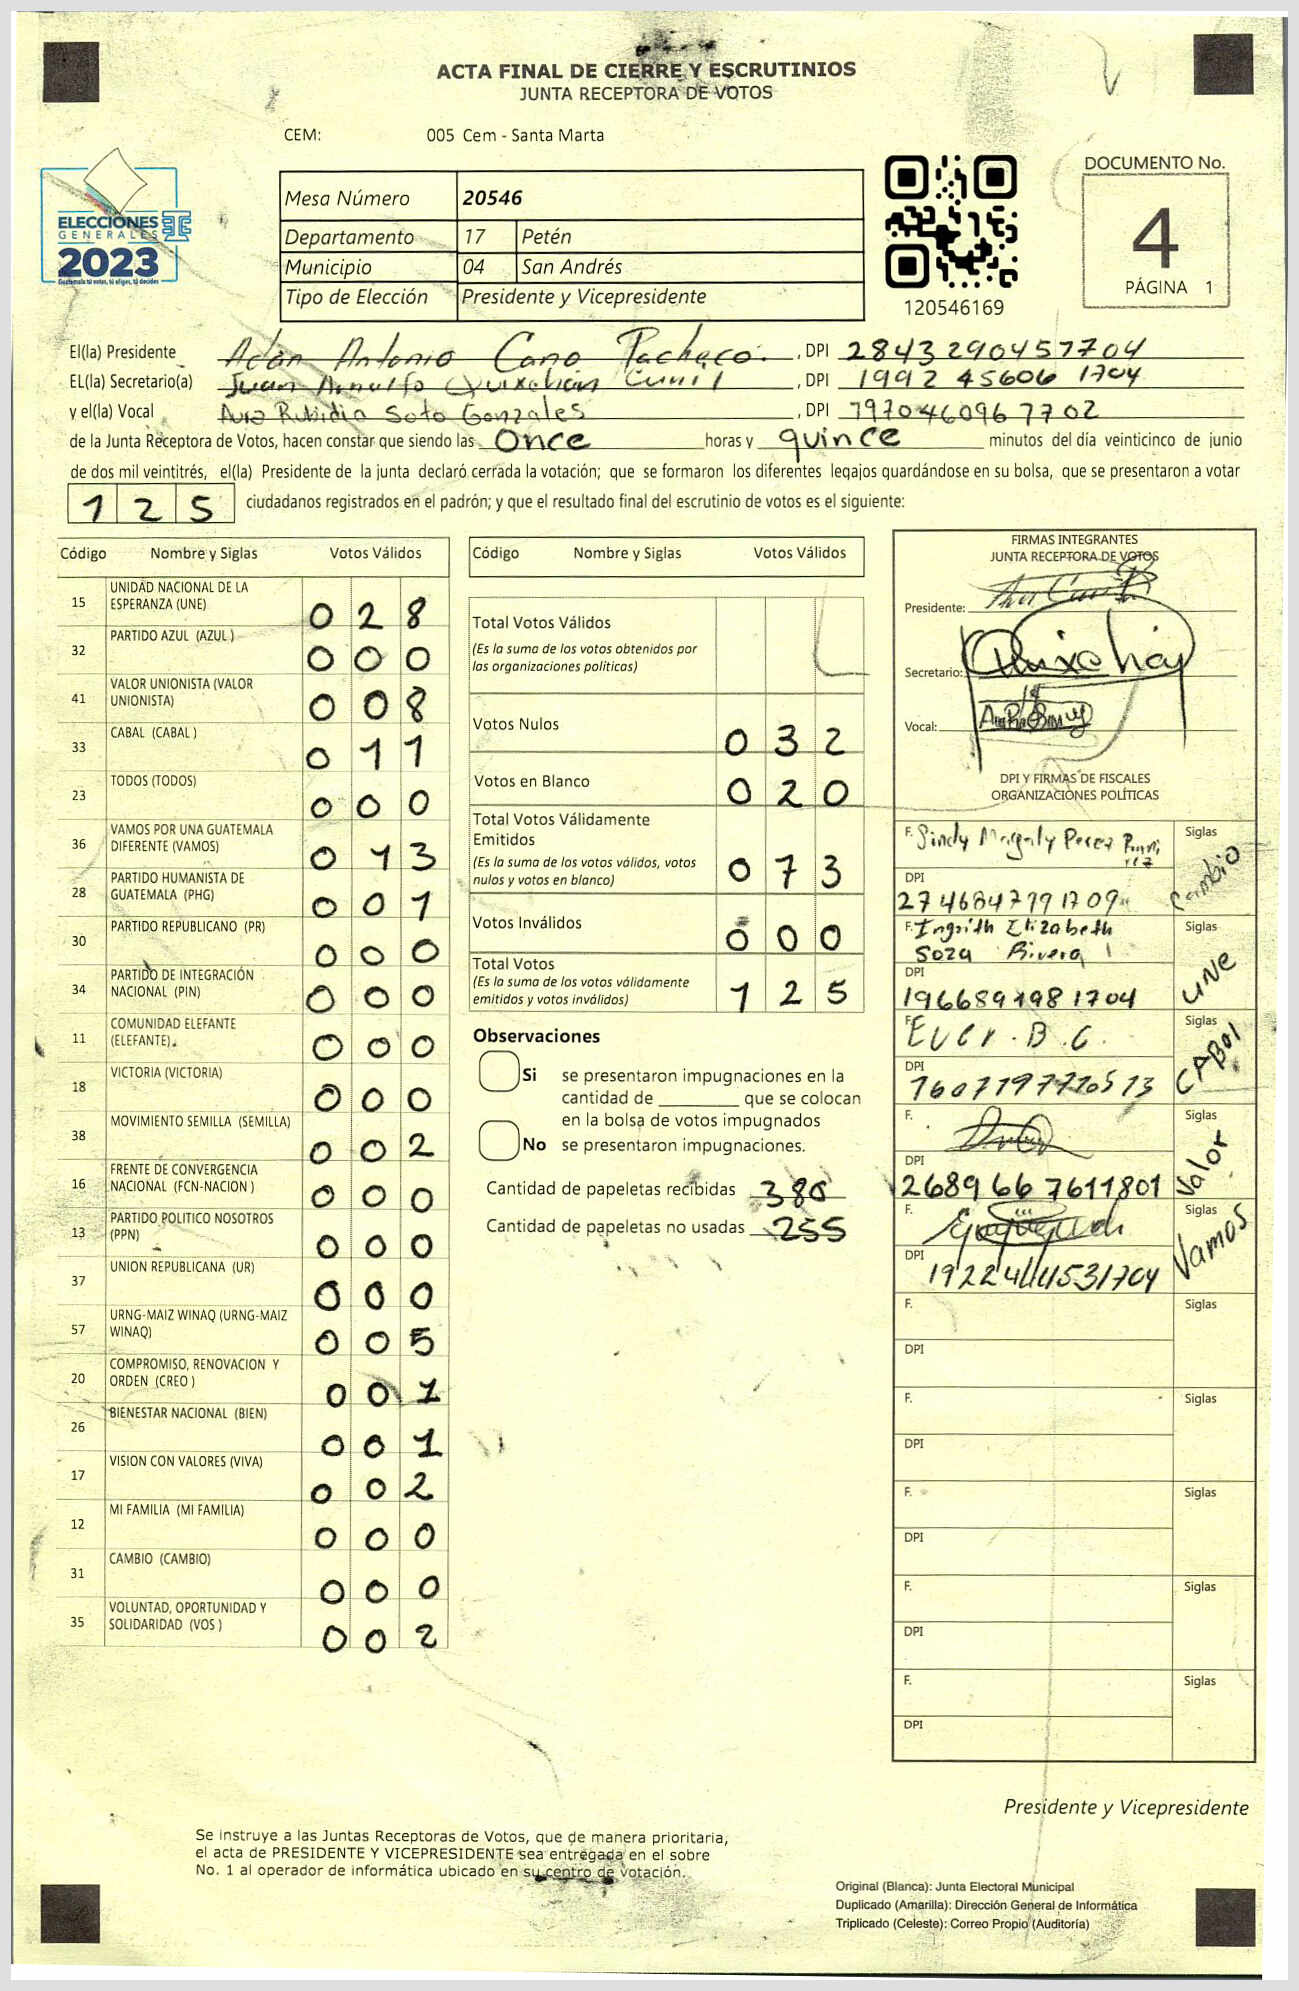 ACTA FINAL DE CIERRE Y ESCRUTINIOS
JUNTA RECEPTORA DE VOTOS
CEM: 005 Cem - Santa Marta
ELECCIONES
GENERALES
2023
Guatemala tú votas, tú eliges, tú decides
Mesa Número 20546
Departamento 17 Petén
Municipio 04 San Andrés
Tipo de Elección Presidente y Vicepresidente
120546169
DOCUMENTO No.
4
PÁGINA 1
El(la) Presidente Adán Antonio Cano Pacheco. , DPI 2843290457704
EL(la) Secretario(a) Juan Arnulfo Quixchán Cunil , DPI 1992 45606 1704
y el(la) Vocal Aura Rubidia Soto Gonzales , DPI 7970460967702
de la Junta Receptora de Votos, hacen constar que siendo las Once horas y quince minutos del día veinticinco de junio
de dos mil veintitrés, el(la) Presidente de la junta declaró cerrada la votación; que se formaron los diferentes legajos guardándose en su bolsa, que se presentaron a votar
125 ciudadanos registrados en el padrón; y que el resultado final del escrutinio de votos es el siguiente:
Código Nombre y Siglas Votos Válidos
15 UNIDAD NACIONAL DE LA ESPERANZA (UNE) 028
32 PARTIDO AZUL (AZUL ) 000
41 VALOR UNIONISTA (VALOR UNIONISTA) 008
33 CABAL (CABAL ) 011
23 TODOS (TODOS) 000
36 VAMOS POR UNA GUATEMALA DIFERENTE (VAMOS) 013
28 PARTIDO HUMANISTA DE GUATEMALA (PHG) 001
30 PARTIDO REPUBLICANO (PR) 000
34 PARTIDO DE INTEGRACIÓN NACIONAL (PIN) 000
11 COMUNIDAD ELEFANTE (ELEFANTE) 000
18 VICTORIA (VICTORIA) 000
38 MOVIMIENTO SEMILLA (SEMILLA) 002
16 FRENTE DE CONVERGENCIA NACIONAL (FCN-NACION ) 000
13 PARTIDO POLITICO NOSOTROS (PPN) 000
37 UNION REPUBLICANA (UR) 000
57 URNG-MAIZ WINAQ (URNG-MAIZ WINAQ) 005
20 COMPROMISO, RENOVACION Y ORDEN (CREO ) 001
26 BIENESTAR NACIONAL (BIEN) 001
17 VISION CON VALORES (VIVA) 002
12 MI FAMILIA (MI FAMILIA) 000
31 CAMBIO (CAMBIO) 000
35 VOLUNTAD, OPORTUNIDAD Y SOLIDARIDAD (VOS ) 002
Código Nombre y Siglas Votos Válidos
Total Votos Válidos
(Es la suma de los votos obtenidos por
las organizaciones políticas)
Votos Nulos 032
Votos en Blanco 020
Total Votos Válidamente
Emitidos
(Es la suma de los votos válidos, votos
nulos y votos en blanco) 073
Votos Inválidos 000
Total Votos
(Es la suma de los votos válidamente
emitidos y votos inválidos) 125
Observaciones
Si se presentaron impugnaciones en la
cantidad de ________ que se colocan
en la bolsa de votos impugnados
No se presentaron impugnaciones.
Cantidad de papeletas recibidas 380
Cantidad de papeletas no usadas 255
FIRMAS INTEGRANTES
JUNTA RECEPTORA DE VOTOS
Presidente:
Secretario: Quixchán
Vocal:
DPI Y FIRMAS DE FISCALES
ORGANIZACIONES POLÍTICAS
F. Sindy Magaly Perez
Siglas Cambio
DPI
2746847791709
F. Ingrith Elizabeth
Soza Rivera
Siglas UNE
DPI
1966891981704
F. Ever. B. C.
Siglas CABAl
DPI
1607197710513
F.
Siglas Valor
DPI
2689 66 7611801
F.
Siglas Vamos
DPI
F.
Siglas
DPI
F.
Siglas
DPI
F.
Siglas
DPI
F.
Siglas
DPI
F.
Siglas
DPI
Presidente y Vicepresidente
Se instruye a las Juntas Receptoras de Votos, que de manera prioritaria,
el acta de PRESIDENTE Y VICEPRESIDENTE sea entregada en el sobre
No. 1 al operador de informática ubicado en su centro de votación.
Original (Blanca): Junta Electoral Municipal
Duplicado (Amarilla): Dirección General de Informática
Triplicado (Celeste): Correo Propio (Auditoría)